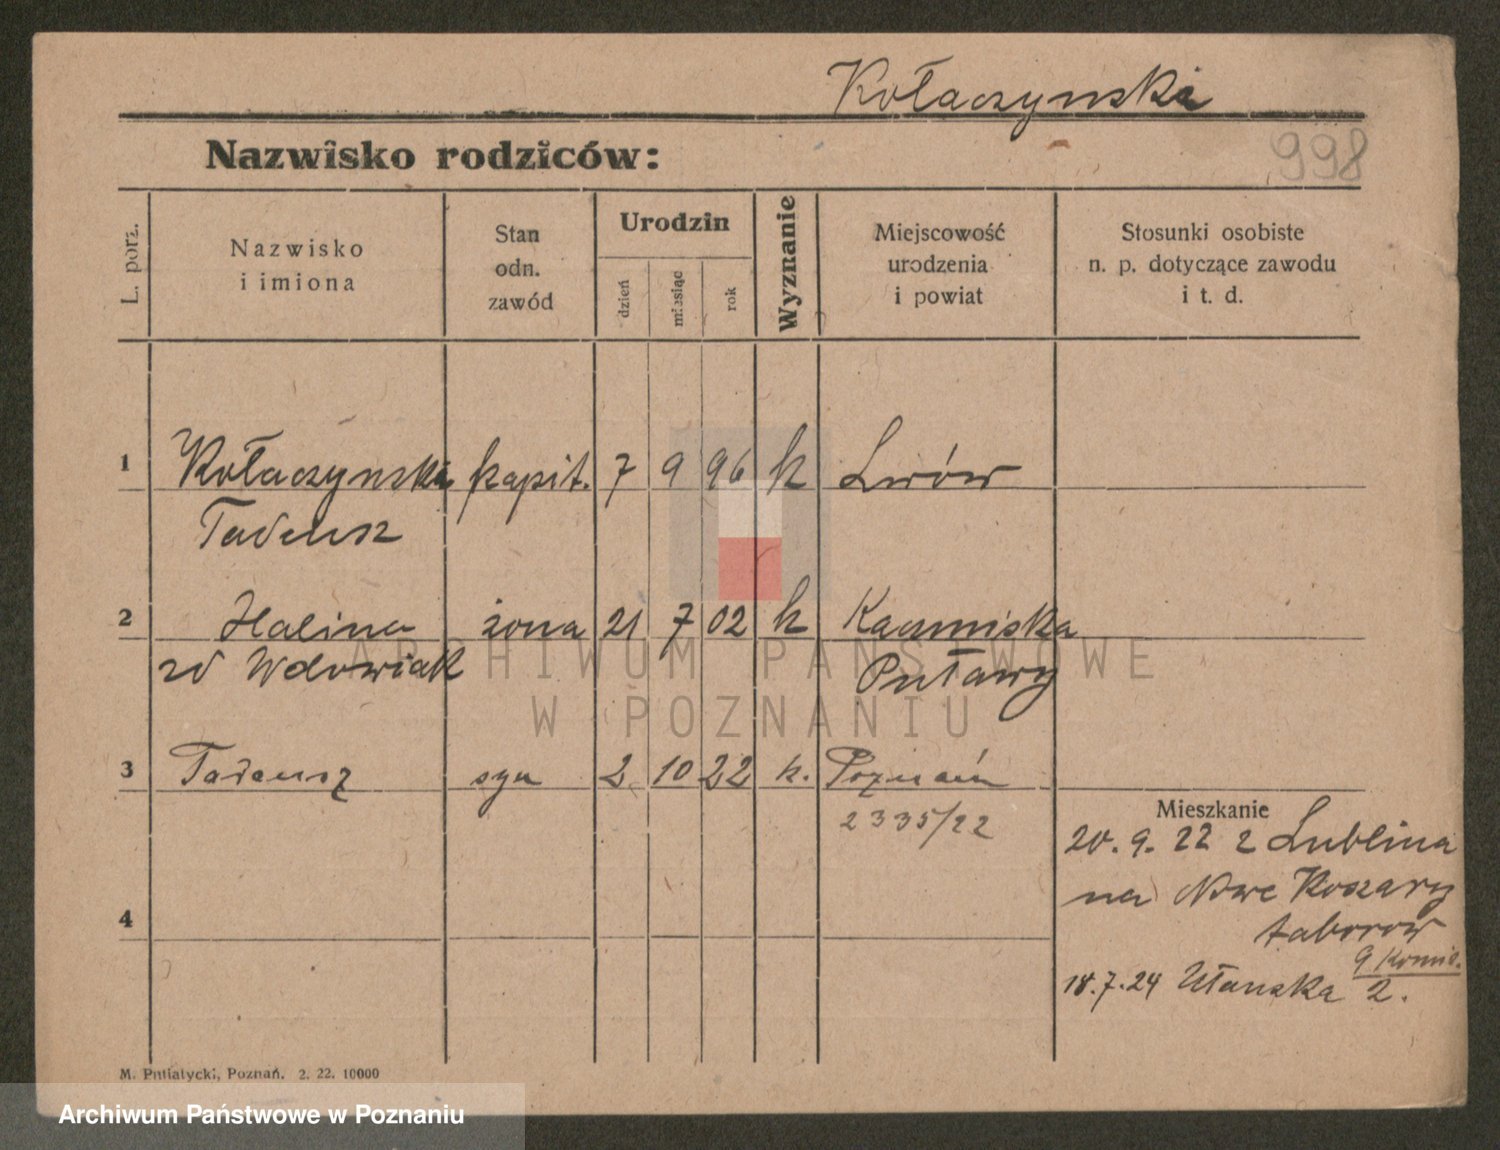 Kołaczynski
Nazwisko rodziców:
998
L. porz.
Nazwisko
i imiona
Stan
odn.
zawód
Urodzin
dzień
miesiąc
rok
Wyznanie
Miejscowość
urodzenia
i powiat
Stosunki osobiste
n. p. dotyczące zawodu
i t. d.
1 Kołaczynski kapit. 7 9 96 k Lwów
Tadeusz
2 Halina żona 21 7 02 k
zd Wdowiak Puławy
ARCHIWUM PAŃSTWOWE
W POZNANIU
3 Tadeusz syn 2 10 22 k. Poznań
2335/22
Mieszkanie
20. 9. 22 z Lublina
na Nowe Koszary
taborow
4
9 Komis.
18.7.24 Ułanska 2.
M. Putiatycki, Poznań. 2. 22. 10000
Archiwum Państwowe w Poznaniu